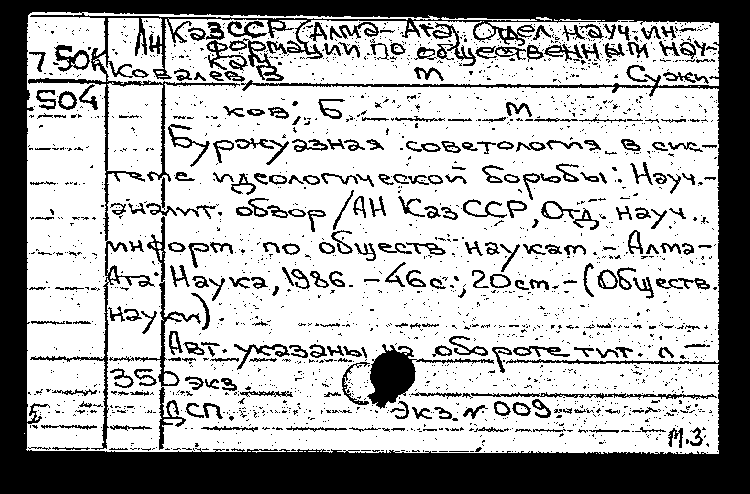 АН КазССР (Алма-Ата). Отдел науч. ин-
формации по общественным нау-
кам.
7.50К
Ковалев, В т ; Сужи-
2504
ков; Б. т
Буржуазная советология в сис-
теме идеологической борьбы: Науч.-
аналит. обзор / АН КазССР, Отд. науч.
информ. по обществ наукам. - Алма-
Ата: Наука, 1986. - 46с.; 20см. - (Обществ.
науки).
Авт. указаны на обороте тит. л. -
350 экз.
ДСП. Экз. № 009.
М.З.